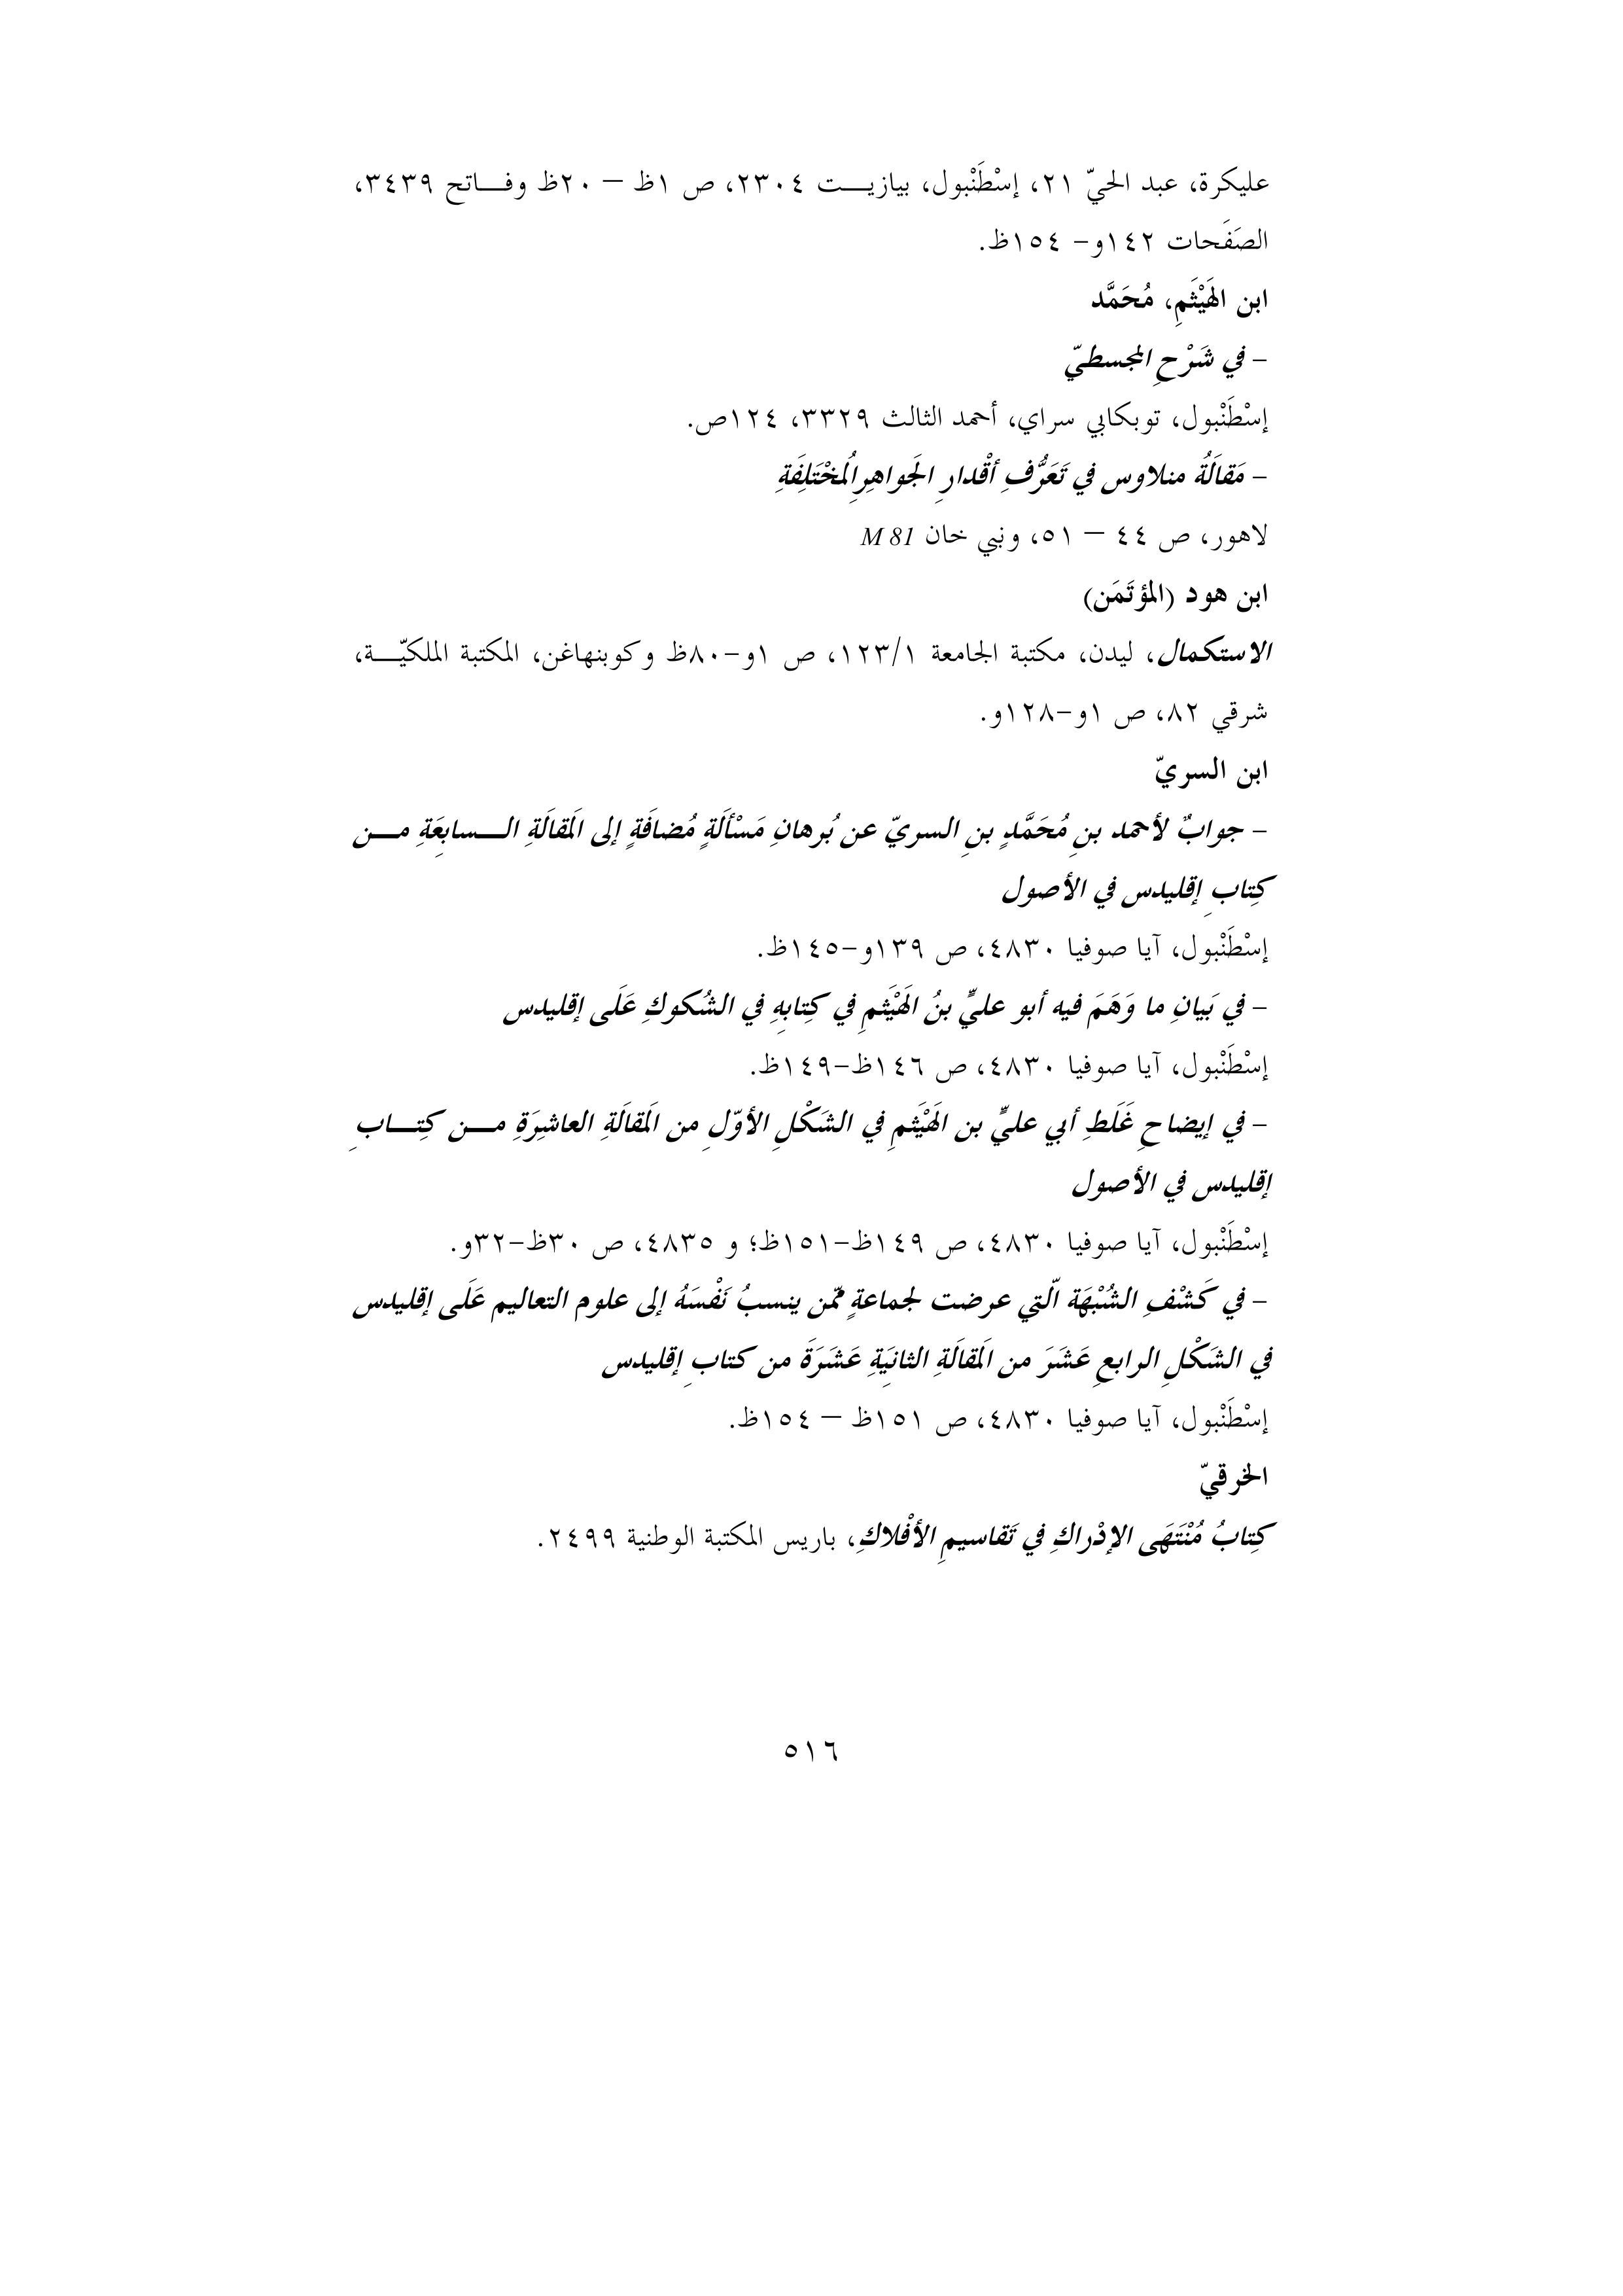 عليكرة، عبد الحيّ ٢١، إسْطَنْبول، بيازيـــت ٢٣٠٤، ص ١ظ – ٢٠ظ وفـــاتح ٣٤٣٩،
الصَفَحات ١٤٢و- ١٥٤ظ.
ابن الهَيْثَمِ، مُحَمَّد
- في شَرْحِ المجسطيّ
إسْطَنْبول، توبكابي سراي، أحمد الثالث ٣٣٢٩، ١٢٤ص.
- مَقالَةُ منلاوس في تَعَرُّفِ أقْدارِ الجَواهِرِالُمخْتَلِفَةِ
لاهور، ص ٤٤ – ٥١، ونبي خان M 81
ابن هود (المؤتَمَن)
الاستكمال، ليدن، مكتبة الجامعة ١٢٣/١، ص ١و-٨٠ظ وكوبنهاغن، المكتبة الملكيّـــة،
شرقي ٨٢، ص ١و-١٢٨و.
ابن السريّ
- جوابٌ لأحمد بنِ مُحَمَّدٍ بنِ السريّ عن بُرهانِ مَسْألَةٍ مُضافَةٍ إلى المَقالَةِ الـــسابِعَةِ مـــن
كِتابِ إقليدس في الأصول
إسْطَنْبول، آيا صوفيا ٤٨٣٠، ص ١٣٩و-١٤٥ظ.
- في بَيانِ ما وَهَمَ فيه أبو عليٍّ بنُ الهَيْثَمِ في كِتابِهِ في الشُكوكِ عَلَى إقليدس
إسْطَنْبول، آيا صوفيا ٤٨٣٠، ص ١٤٦ظ-١٤٩ظ.
- في إيضاحِ غَلَطِ أبي عليٍّ بن الهَيْثَمِ في الشَكْلِ الأوّلِ من المَقالَةِ العاشِرَةِ مـــن كِتـــابِ
إقليدس في الأصول
إسْطَنْبول، آيا صوفيا ٤٨٣٠، ص ١٤٩ظ-١٥١ظ؛ و ٤٨٣٥، ص ٣٠ظ-٣٢و.
- في كَشْفِ الشُبْهَة الّتي عرضت لجماعةٍ ممّن ينسبُ نَفْسَهُ إلى علوم التعاليم عَلَى إقليدس
في الشَكْلِ الرابعِ عَشَرَ من المَقالَةِ الثانيَةِ عَشَرَةَ من كتابِ إقليدس
إسْطَنْبول، آيا صوفيا ٤٨٣٠، ص ١٥١ظ – ١٥٤ظ.
الخرقيّ
كِتابُ مُنْتَهَى الإدْراكِ في تَقاسيمِ الأفْلاكِ، باريس المكتبة الوطنية ٢٤٩٩.
٥١٦